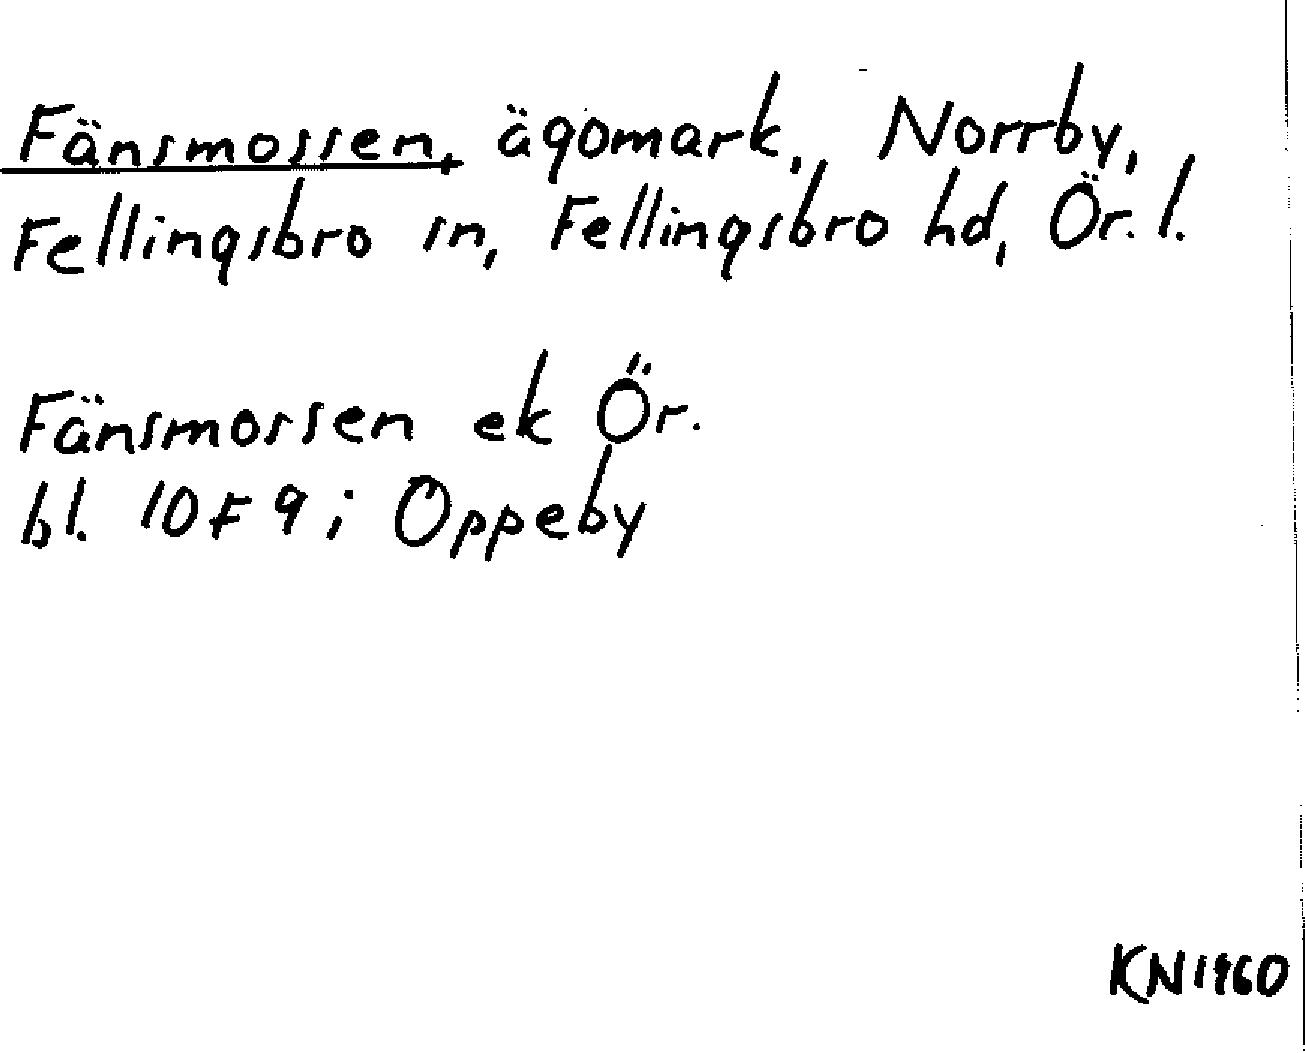 Fänsmossen, ägomark, Norrby,
Fellingsbro sn, Fellingsbro hd, Ör. l.
Fänsmossen ek Ör.
bl. 10 F 9 i Oppeby
KN 1960